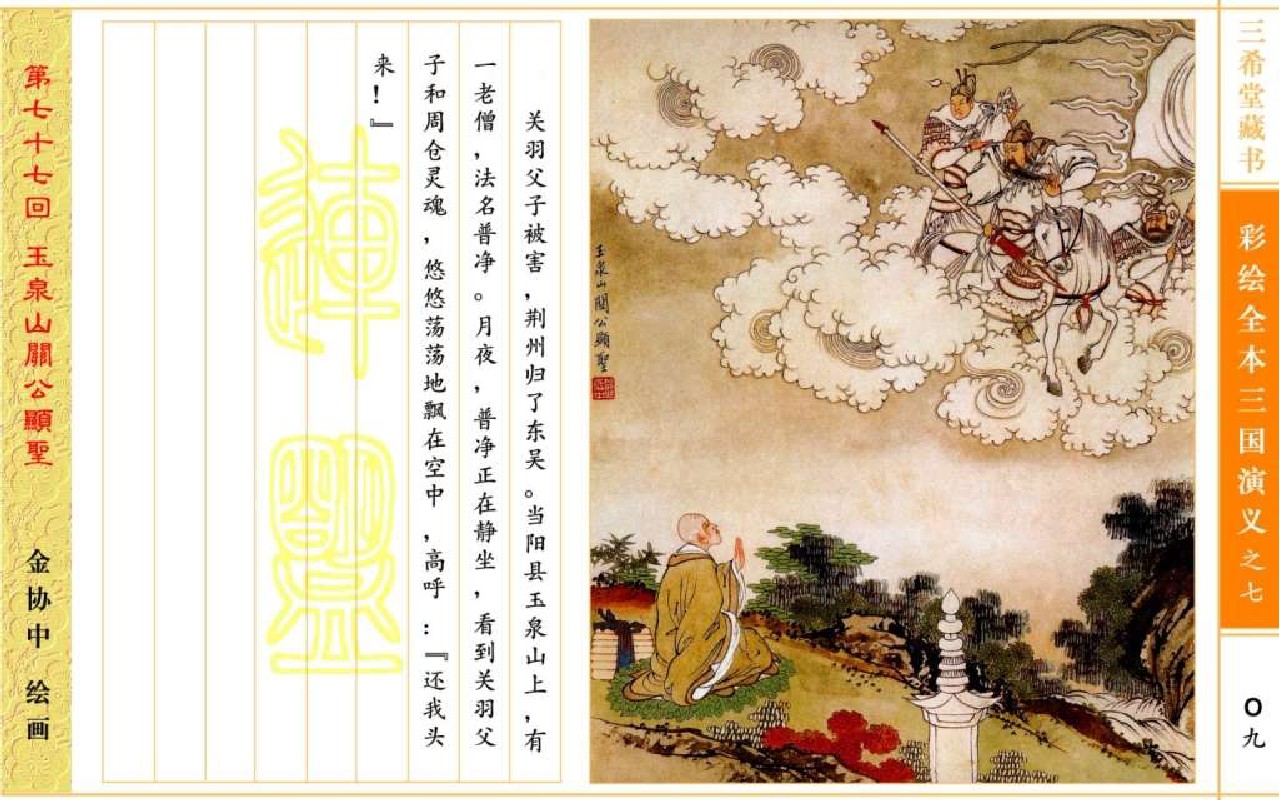 三希堂藏书
彩绘全本三国演义之七
〇九
玉泉山關公顯聖
关羽父子被害，荆州归了东吴。当阳县玉泉山上，有
一老僧，法名普净。月夜，普净正在静坐，看到关羽父
子和周仓灵魂，悠悠荡荡地飘在空中，高呼：『还我头
来！』
第七十七回 玉泉山關公顯聖
金协中 绘画